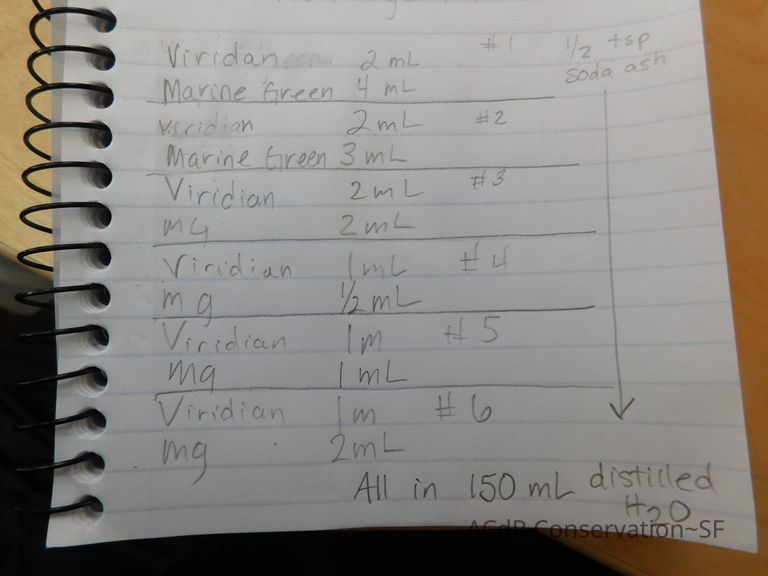 Viridan 2 mL #1 1/2 tsp
Marine Green 4 mL soda ash
viridian 2 mL #2
Marine Green 3 mL
Viridian 2 mL #3
mG 2 mL
Viridian 1 mL #4
mg 1/2 mL
Viridian 1 m #5
mg 1 mL
Viridian 1 m #6
mg 2 mL
All in 150 mL distilled
H2O
ACdR Conservation~SF